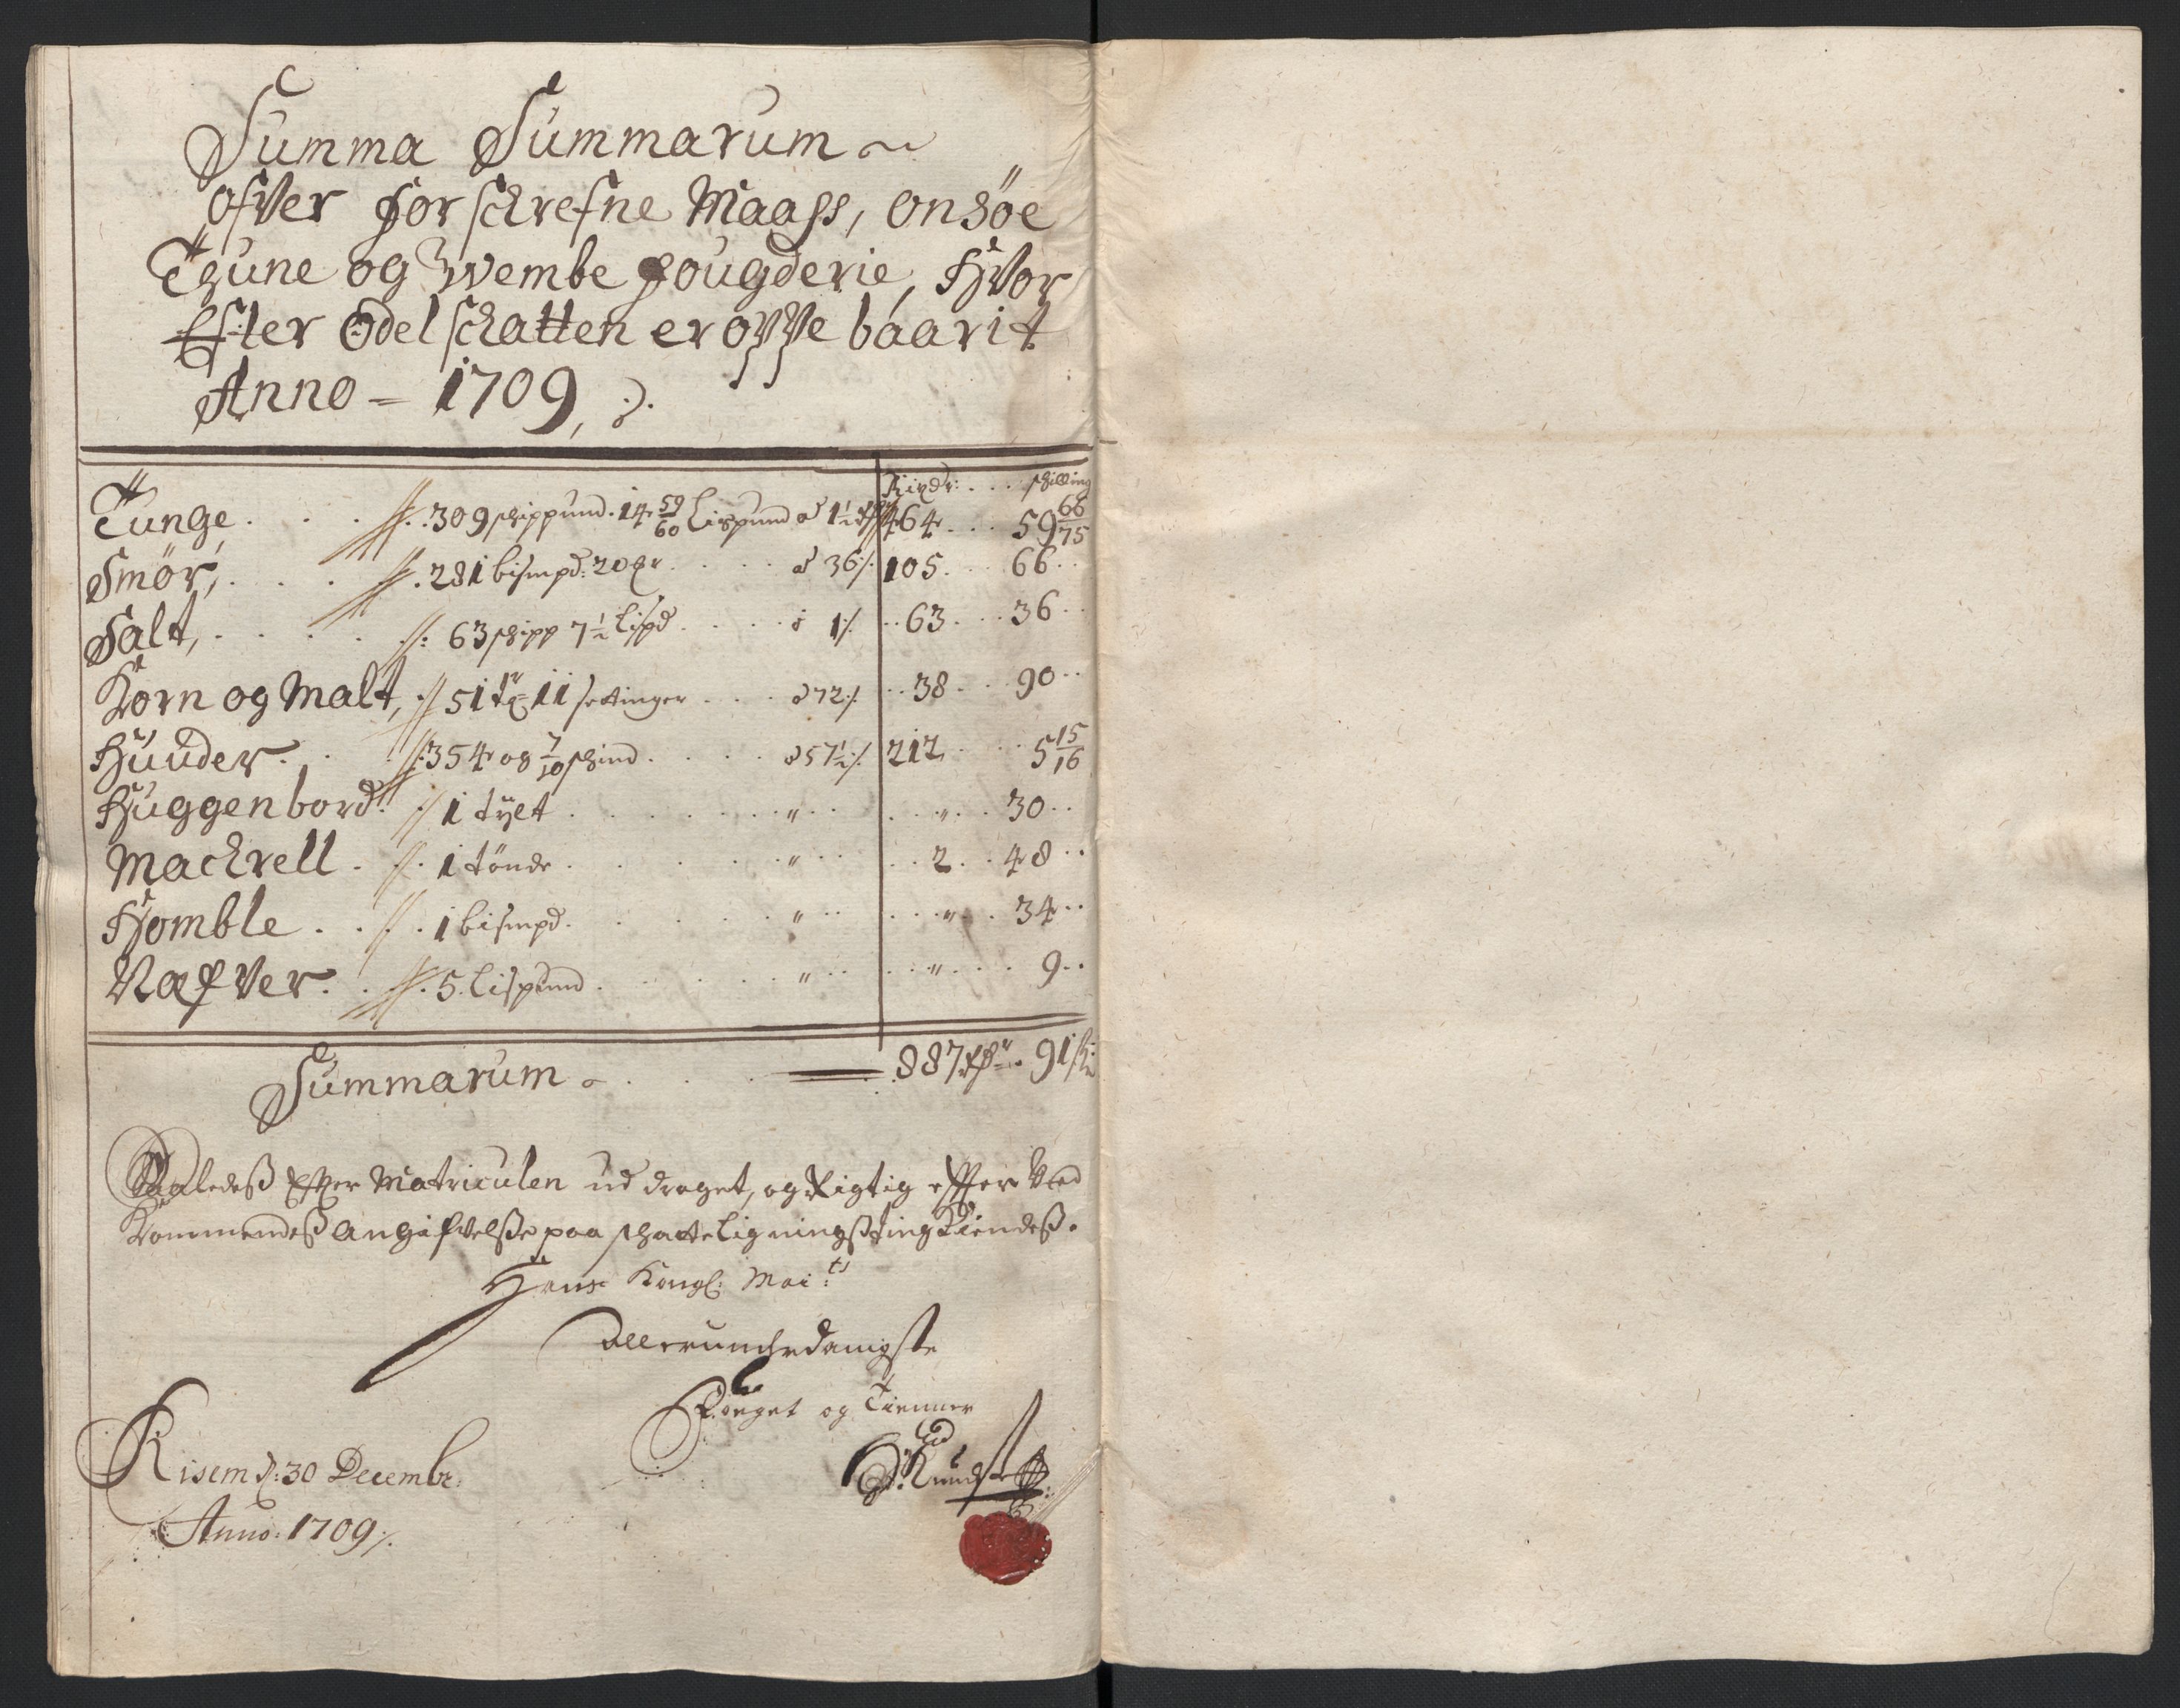 Summa Summarum
ofver forschrefne Maass, Onsöe
Thune og Wembe fougderie, Hvor
Efter Odelschatten er oppebaarit
Anno = 1709,
Rixdr: . . . schilling
Tunge . . . 309 schippund. 14 59/60 Lispund a 1½ 464 . . . 59 66/75
Smör, . . . 281 bismpd: 20 . . . a 36 105 . . . 66 . .
Salt, . . . 63 schipp 7½ Lispd . . . a 1 . . 63 . . . 36 . .
Korn og Malt, 51 tr 11 settinger . . . a 72 . . 38 . . . 90 . .
Huuder . . . 354 og 7/10 schind . . . a 57½ 212 . . . 5 15/16
Huggenbord 1 tylt . . . " . . . " . . 30 . .
Mackrell . . 1 tönde . . . " . . . 2 . . 48 . .
Homble . . . 1 bismpd . . . " . . . " . . 34 . .
Næfver . . . 5 Lispund . . . " . . . " . . . 9 . .
Summarum . . . 887 Rdr 91 s
Saaledeß Efter Matriculen uddraget, og Rigtig efter Ved
Kommendeß Angifvelße paa schatteligningßting Kiendeß.
Hans Kongl: Mai:ts
allerunderdanigste
Fouget og Tienner
Risem d: 30 Decembr:
Anno: 1709